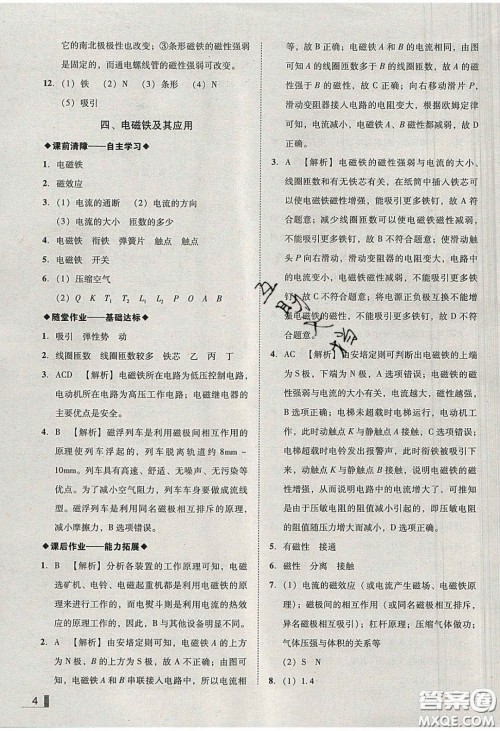 它的南北极极性也改变；③条形磁铁的磁性强弱
是固定的，而通电螺线管的磁性强弱可改变。
12. （1）铁 （2）N （3）条形 （4）N
（5）吸引
四、电磁铁及其应用
◆课前清障——自主学习◆
1. 电磁铁
2. 磁效应
3. （1）电流的通断 （2）电流的方向
（3）电流的大小 匝数的多少
4. 电磁铁 衔铁 弹簧片 触点 触点
5. 电磁铁 开关
6. （1）压缩空气
（2）Q K T₁ T₂ L₁ L₂ P O A B
◆随堂作业——基础达标◆
1. 吸引 弹性势 动
2. 线圈匝数 线圈匝数较多 铁芯 乙 丙 丁
3. ACD 【解析】电磁铁所在电路为低压控制电路，
电动机所在电路为高压工作电路；电磁继电器是
由电磁铁控制电路通断的自动开关。
4. B 【解析】磁浮列车是利用磁极间相互作用的
原理使列车浮起的，列车脱离轨道约 8~
10mm。列车具有高速、舒适、无噪声、无污染等
优点。为了减小空气阻力，列车车身做成流线
型。磁浮列车是利用同名磁极相互排斥的原理，
减小摩擦力，B 选项错误。
◆课后作业——能力拓展◆
1. B 【解析】分析各装置的工作原理可知，电磁
选矿机、电铃、电磁起重机都是利用电磁铁的原
理来工作的，而电熨斗则是利用电流的热效
应的原理工作的，所以 B 符合题意。
2. A 【解析】由安培定则可知，电磁铁 A 的上方
为 N 极，B 的上方为 S 极，故 D 错误；由图可知，
电磁铁 A 和 B 串联接入电路中，所以电流相
等，故 B 正确；电磁铁 A 和 B 的电流相同，A
的线圈匝数多于 B 的线圈匝数，所以电磁铁 A 的
磁性大于 B 的磁性，故 C 错误；向右移动滑片 P，
滑动变阻器接入电路的电阻变大，根据欧姆定律
可知，电流减小，磁性减弱，故 A 正确。
3. A 【解析】电磁铁的磁性强弱与电流的大小、
线圈匝数和有无铁芯有关，在纸筒中插入铁芯可
以使电磁铁磁性增强，能吸引更多铁钉，故 A 符
合题意；减少线圈匝数可以使电磁铁磁性减弱，
不能吸引更多铁钉，故 B 不符合题意；滑动触头
P 向右滑动，滑动变阻器电阻变大，电路中
的电流变小，电磁铁磁性减弱，不能吸引更多铁
钉，故 C 不符合题意；将电源正负极互换不能
增强电磁铁磁性，不能吸引更多铁钉，故 D 不符
合题意。
4. AC 【解析】由安培定则可判断出电磁铁的上端
为 S 极，下端为 N 极，A 选项正确；电磁铁的磁
性大小与电流大小有关，电流越大，磁性越强，
B 选项错误；电梯未超载时电梯电动机工
作，此时动触点 K 与静触点 A 接触，C 选项正确；
电梯超载时电铃发出报警声，此时衔铁被吸引下
来，动触点 K 与静触点 B 接触，电磁铁的磁性增
强，从而说明电路中的电流增大，而电流的改变
是由于压敏电阻的阻值变小引起的，即压敏电阻
的阻值随压力增大而减小，D 选项错误。
5. 有磁性 接通
6. 磁性 分离 接触
7. （1）电流的磁效应（或电流产生磁场、电磁铁原
理）；磁极间的相互作用（或同名磁极相互排斥、
异名磁极相互吸引）；杠杆原理；气体压缩（或
气体压强与体积的关系）等
（2）S N
8. （1）1.4
4
答案圈
MXQE.COM